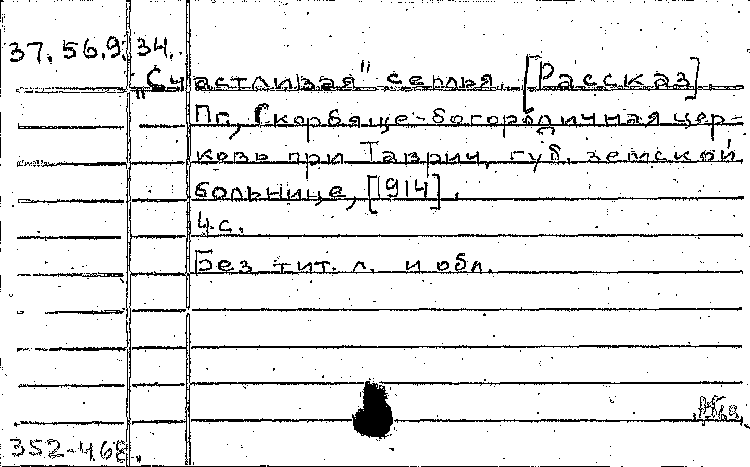 37.56.9.34.
„Счастливая" семья. [Рассказ].
Пг, Скорбяще-богородичная цер-
ковь при Таврич. губ. земской
больнице, [1914].
4 с.
Без тит. л. и обл.
352-468.